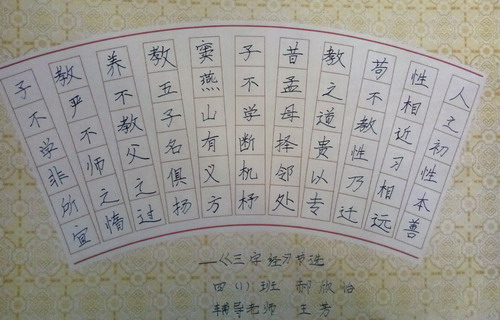 人之初性本善
性相近习相远
苟不教性乃迁
教之道贵以专
昔孟母择邻处
子不学断机杼
窦燕山有义方
教五子名俱扬
养不教父之过
教严不师之惰
子不学非所宜
——《三字经》节选
四(1)班 郝欣怡
辅导老师 王芳